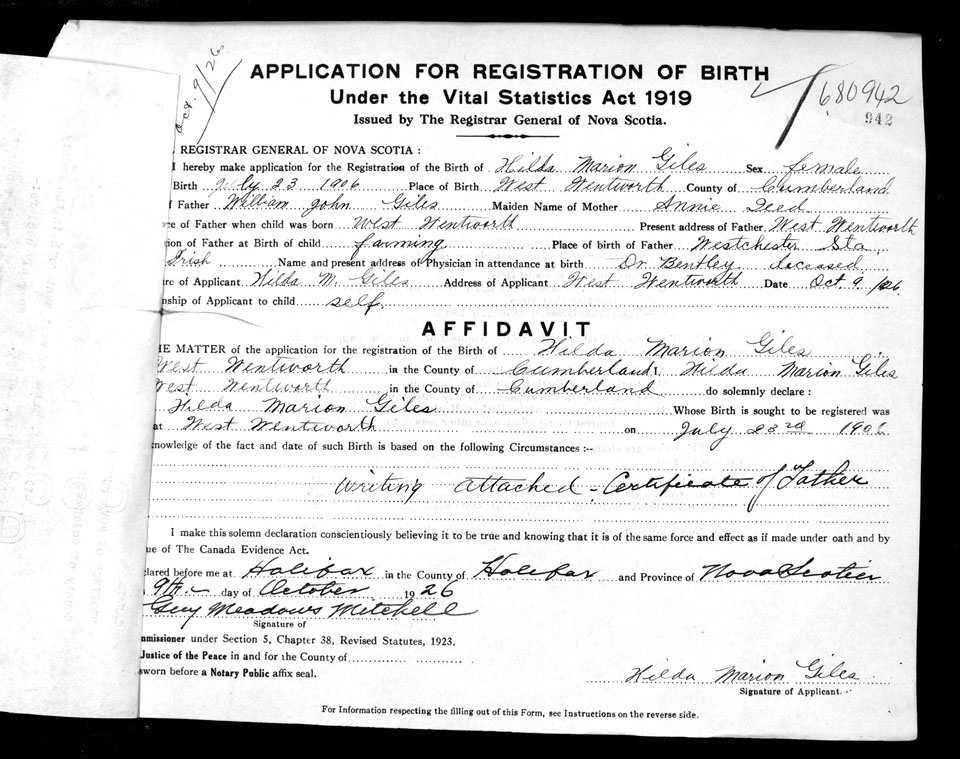 Oct. 9/26
APPLICATION FOR REGISTRATION OF BIRTH
Under the Vital Statistics Act 1919
Issued by The Registrar General of Nova Scotia.
680942
942
REGISTRAR GENERAL OF NOVA SCOTIA :
I hereby make application for the Registration of the Birth of Hilda Marion Giles Sex female
Birth July 23 1906 Place of Birth West Wentworth County of Cumberland
f Father William John Giles Maiden Name of Mother Annie
ce of Father when child was born West Wentworth Present address of Father West Wentworth
ion of Father at Birth of child farming Place of birth of Father Westchester Sta
Irish Name and present address of Physician in attendance at birth Dr. Bentley deceased
re of Applicant Hilda M. Giles Address of Applicant West Wentworth Date Oct. 9. 1926
nship of Applicant to child self.
AFFIDAVIT
HE MATTER of the application for the registration of the Birth of Hilda Marion Giles
West Wentworth in the County of Cumberland I, Hilda Marion Giles
West Wentworth in the County of Cumberland do solemnly declare :
Hilda Marion Giles Whose Birth is sought to be registered was
at West Wentworth on July 23rd 1906
nowledge of the fact and date of such Birth is based on the following Circumstances :--
Writing attached - Certificate of Father
I make this solemn declaration conscientiously believing it to be true and knowing that it is of the same force and effect as if made under oath and by
ue of The Canada Evidence Act.
lared before me at Halifax in the County of Halifax and Province of Nova Scotia
9th day of October 1926
Guy Meadows Mitchell
Signature of
mmissioner under Section 5, Chapter 38, Revised Statutes, 1923.
Justice of the Peace in and for the County of
sworn before a Notary Public affix seal.
Hilda Marion Giles
Signature of Applicant.
For Information respecting the filling out of this Form, see Instructions on the reverse side.